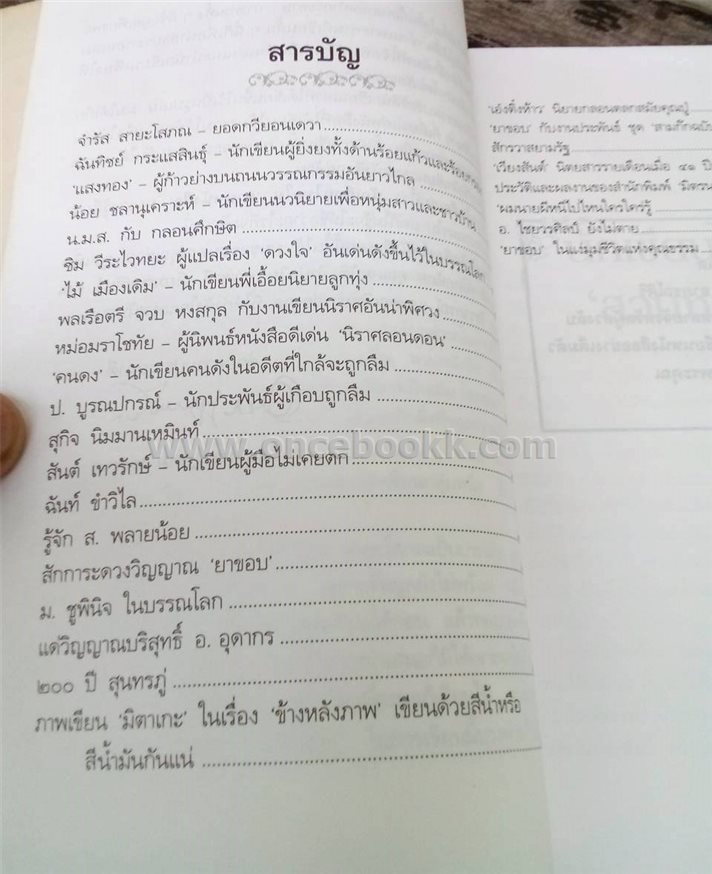 สารบัญ
จำรัส สายะโสภณ – ยอดกวียอนเดวา
ฉันทิชย์ กระแสสินธุ์ – นักเขียนผู้ยิ่งยงทั้งด้านร้อยแก้วและร้อยกรอง
'แสงทอง' – ผู้ก้าวย่างบนถนนวรรณกรรมอันยาวไกล
น้อย ชลานุเคราะห์ – นักเขียนนวนิยายเพื่อหนุ่มสาวและชาวบ้าน
น.ม.ส. กับ กลอนศึกษิต
ซิม วีระไวทยะ ผู้แปลเรื่อง 'ดวงใจ' อันเด่นดังขึ้นไว้ในบรรณโลก
'ไม้ เมืองเดิม' – นักเขียนพี่เอื้อยนิยายลูกทุ่ง
พลเรือตรี จวบ หงสกุล กับงานเขียนนิราศอันน่าพิศวง
หม่อมราโชทัย – ผู้นิพนธ์หนังสือดีเด่น 'นิราศลอนดอน'
'คนดง' – นักเขียนคนดังในอดีตที่ใกล้จะถูกลืม
ป. บูรณปกรณ์ – นักประพันธ์ผู้เกือบถูกลืม
สุกิจ นิมมานเหมินท์
www.oncebookk.com
สันต์ เทวรักษ์ – นักเขียนผู้มือไม่เคยตก
ฉันท์ ขำวิไล
รู้จัก ส. พลายน้อย
สักการะดวงวิญญาณ 'ยาขอบ'
ม. ชูพินิจ ในบรรณโลก
แด่วิญญาณบริสุทธิ์ อ. อุดากร
๒๐๐ ปี สุนทรภู่
ภาพเขียน 'มิตาเกะ' ในเรื่อง 'ข้างหลังภาพ' เขียนด้วยสีน้ำหรือ
สีน้ำมันกันแน่
'เอ้งติ่งห้าว' นิยายกลอนตลกสมัยคุณปู่
'ยาขอบ' กับงานประพันธ์ ชุด 'สามก๊กฉบับ
สักรวาสยามรัฐ
'เวียงสันต์' นิตยสารรายเดือนเมื่อ ๔๑ ปี
ประวัติและผลงานของสำนักพิมพ์ 'มิตรน
'ผมนายผีหนีไปไหนใครใคร่รู้
อ. ไชยวรศิลป์ ยังไม่ตาย
'ยาขอบ' ในแง่มุมชีวิตแห่งคุณธรรม